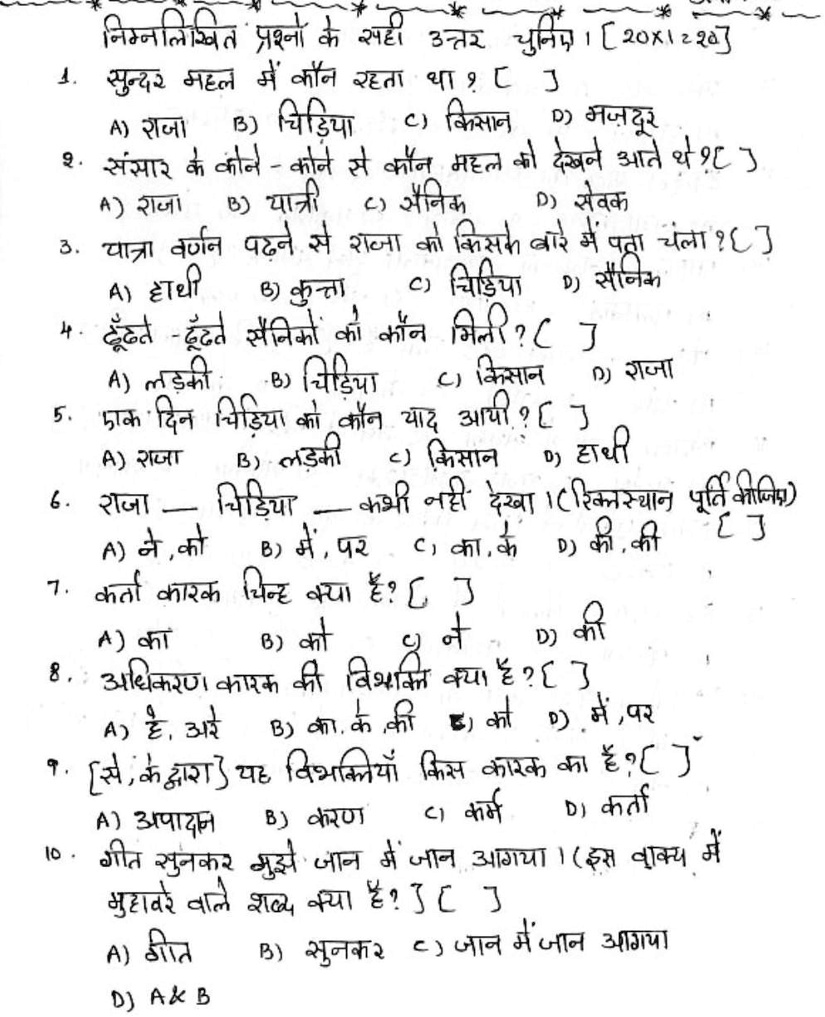 निम्नलिखित प्रश्नों के सही उत्तर चुनिए । [20X1=20]
1. सुन्दर महल में कौन रहता था ? [ ]
A) राजा B) चिड़िया C) किसान D) मजदूर
2. संसार के कोने - कोने से कौन महल को देखने आते थे ? [ ]
A) राजा B) यात्री C) सैनिक D) सेवक
3. यात्रा वर्णन पढने से राजा को किसके बारे में पता चला ? [ ]
A) हाथी B) कुत्ता C) चिडिया D) सैनिक
4. ढूँढते - ढूँढते सैनिकों को कौन मिली ? [ ]
A) लड़की B) चिड़िया C) किसान D) राजा
5. एक दिन चिड़िया को कौन याद आयी ? [ ]
A) राजा B) लड़की C) किसान D) हाथी
6. राजा — चिड़िया — कभी नही देखा । (रिक्तस्थान पूर्ति कीजिए)
[ ]
A) ने ,को B) में , पर C) का , के D) की , की
7. कर्ता कारक चिन्ह क्या है ? [ ]
A) का B) को C) ने D) की
8. अधिकरण कारक की विभक्ति क्या है ? [ ]
A) हे, अरे B) का, के ,की C) को D) में ,पर
9. [से, के द्वारा] यह विभक्तियाँ किस कारक का है ? [ ]
A) अपादान B) करण C) कर्म D) कर्ता
10. गीत सुनकर मुझे जान में जान आगया । (इस वाक्य में
मुहावरे वाले शब्द क्या है ? ] [ ]
A) गीत B) सुनकर C) जान में जान आगया
D) A & B